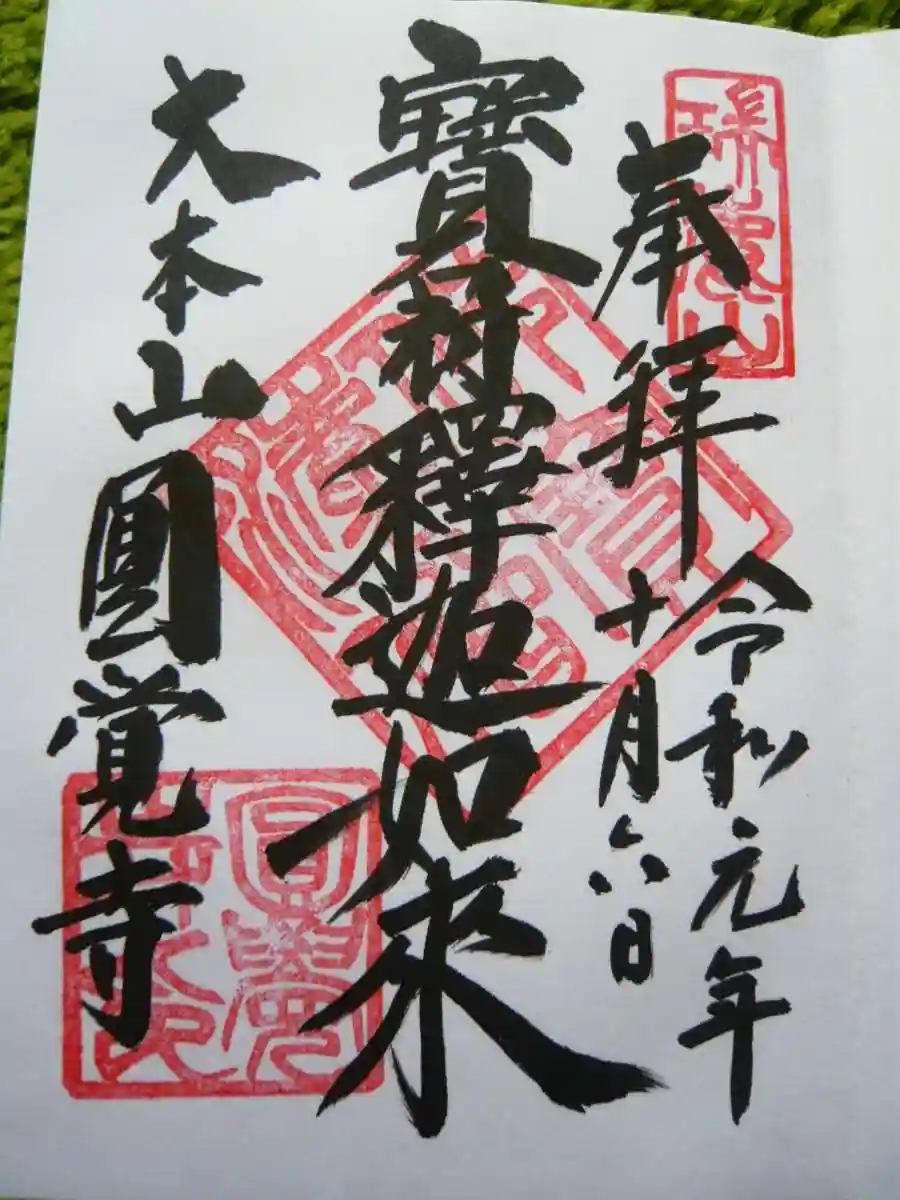 瑞鹿山
奉拝
令和元年
十月六日
寶冠釋迦如來
大本山圓覚寺